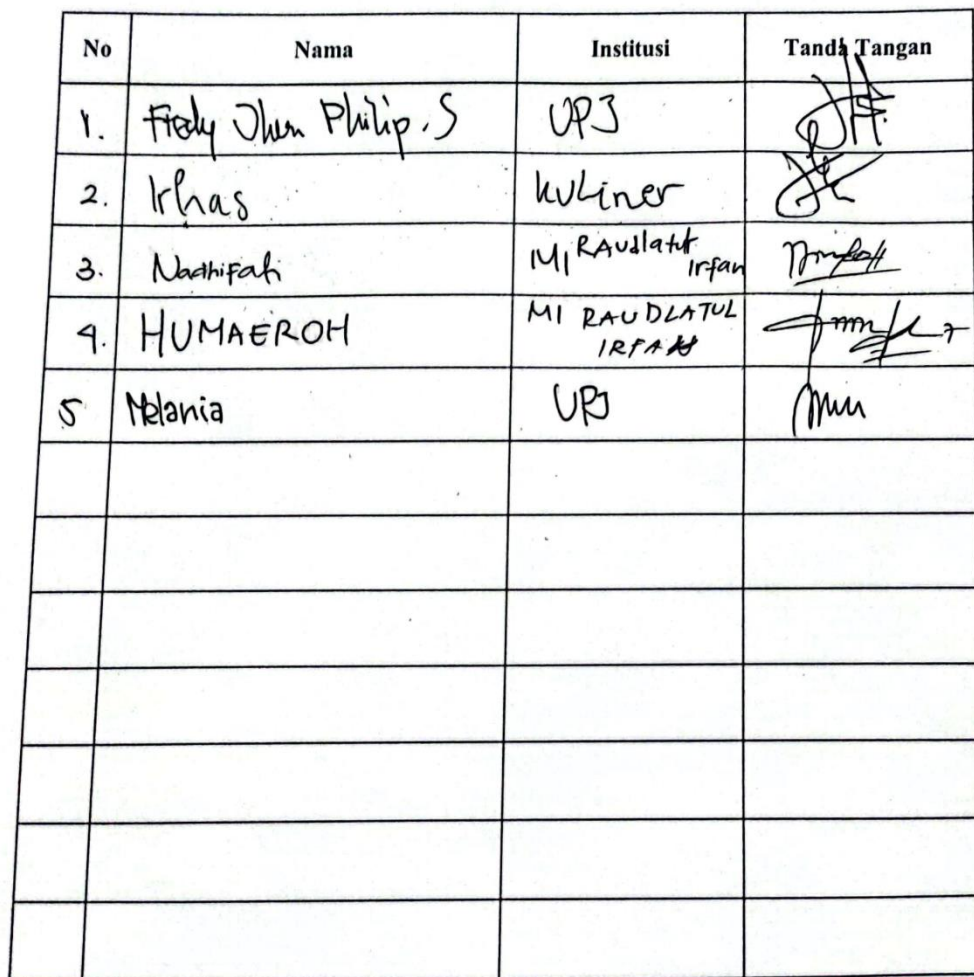 No Nama Institusi Tanda Tangan
1. Fredy Jhon Philip.S UPJ
2. Irhas kuliner
3. Nadhifah MI RAudlatul Irfan
4. HUMAEROH MI RAUDLATUL IRFAN
5 Melania UPJ